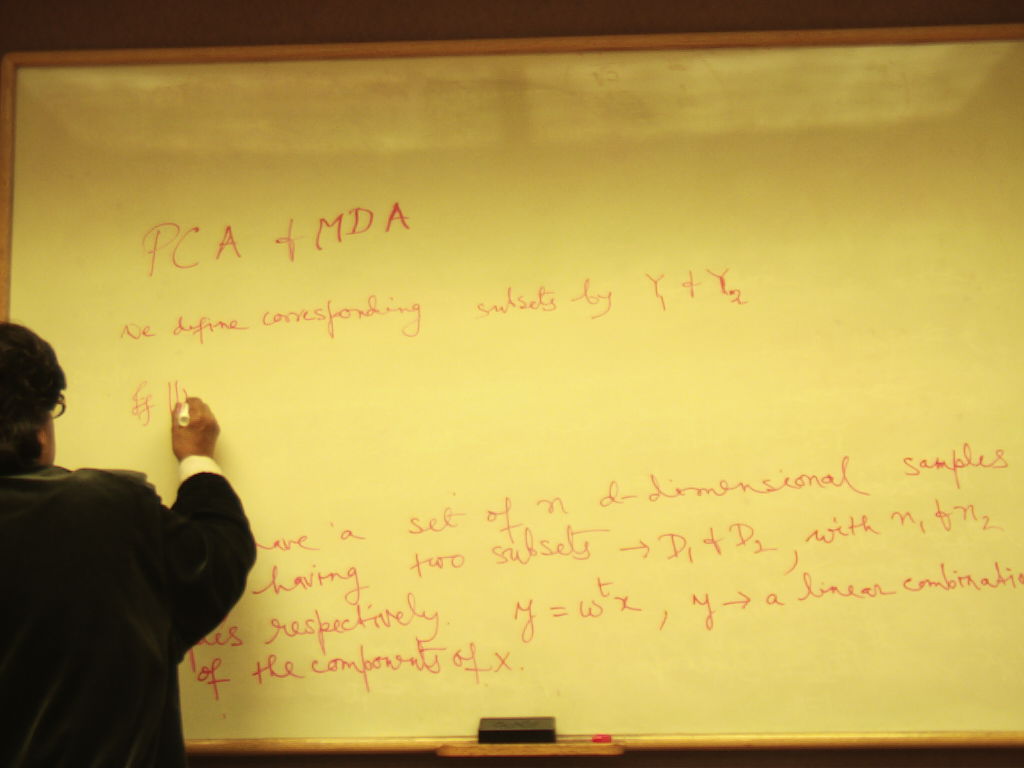 PCA & MDA
We define corresponding subsets by Y1 & Y2
If
ave a set of n d-dimensional samples
having two subsets → D1 & D2, with n1 & n2
les respectively. y = w^t x, y → a linear combinatio
of the components of x.